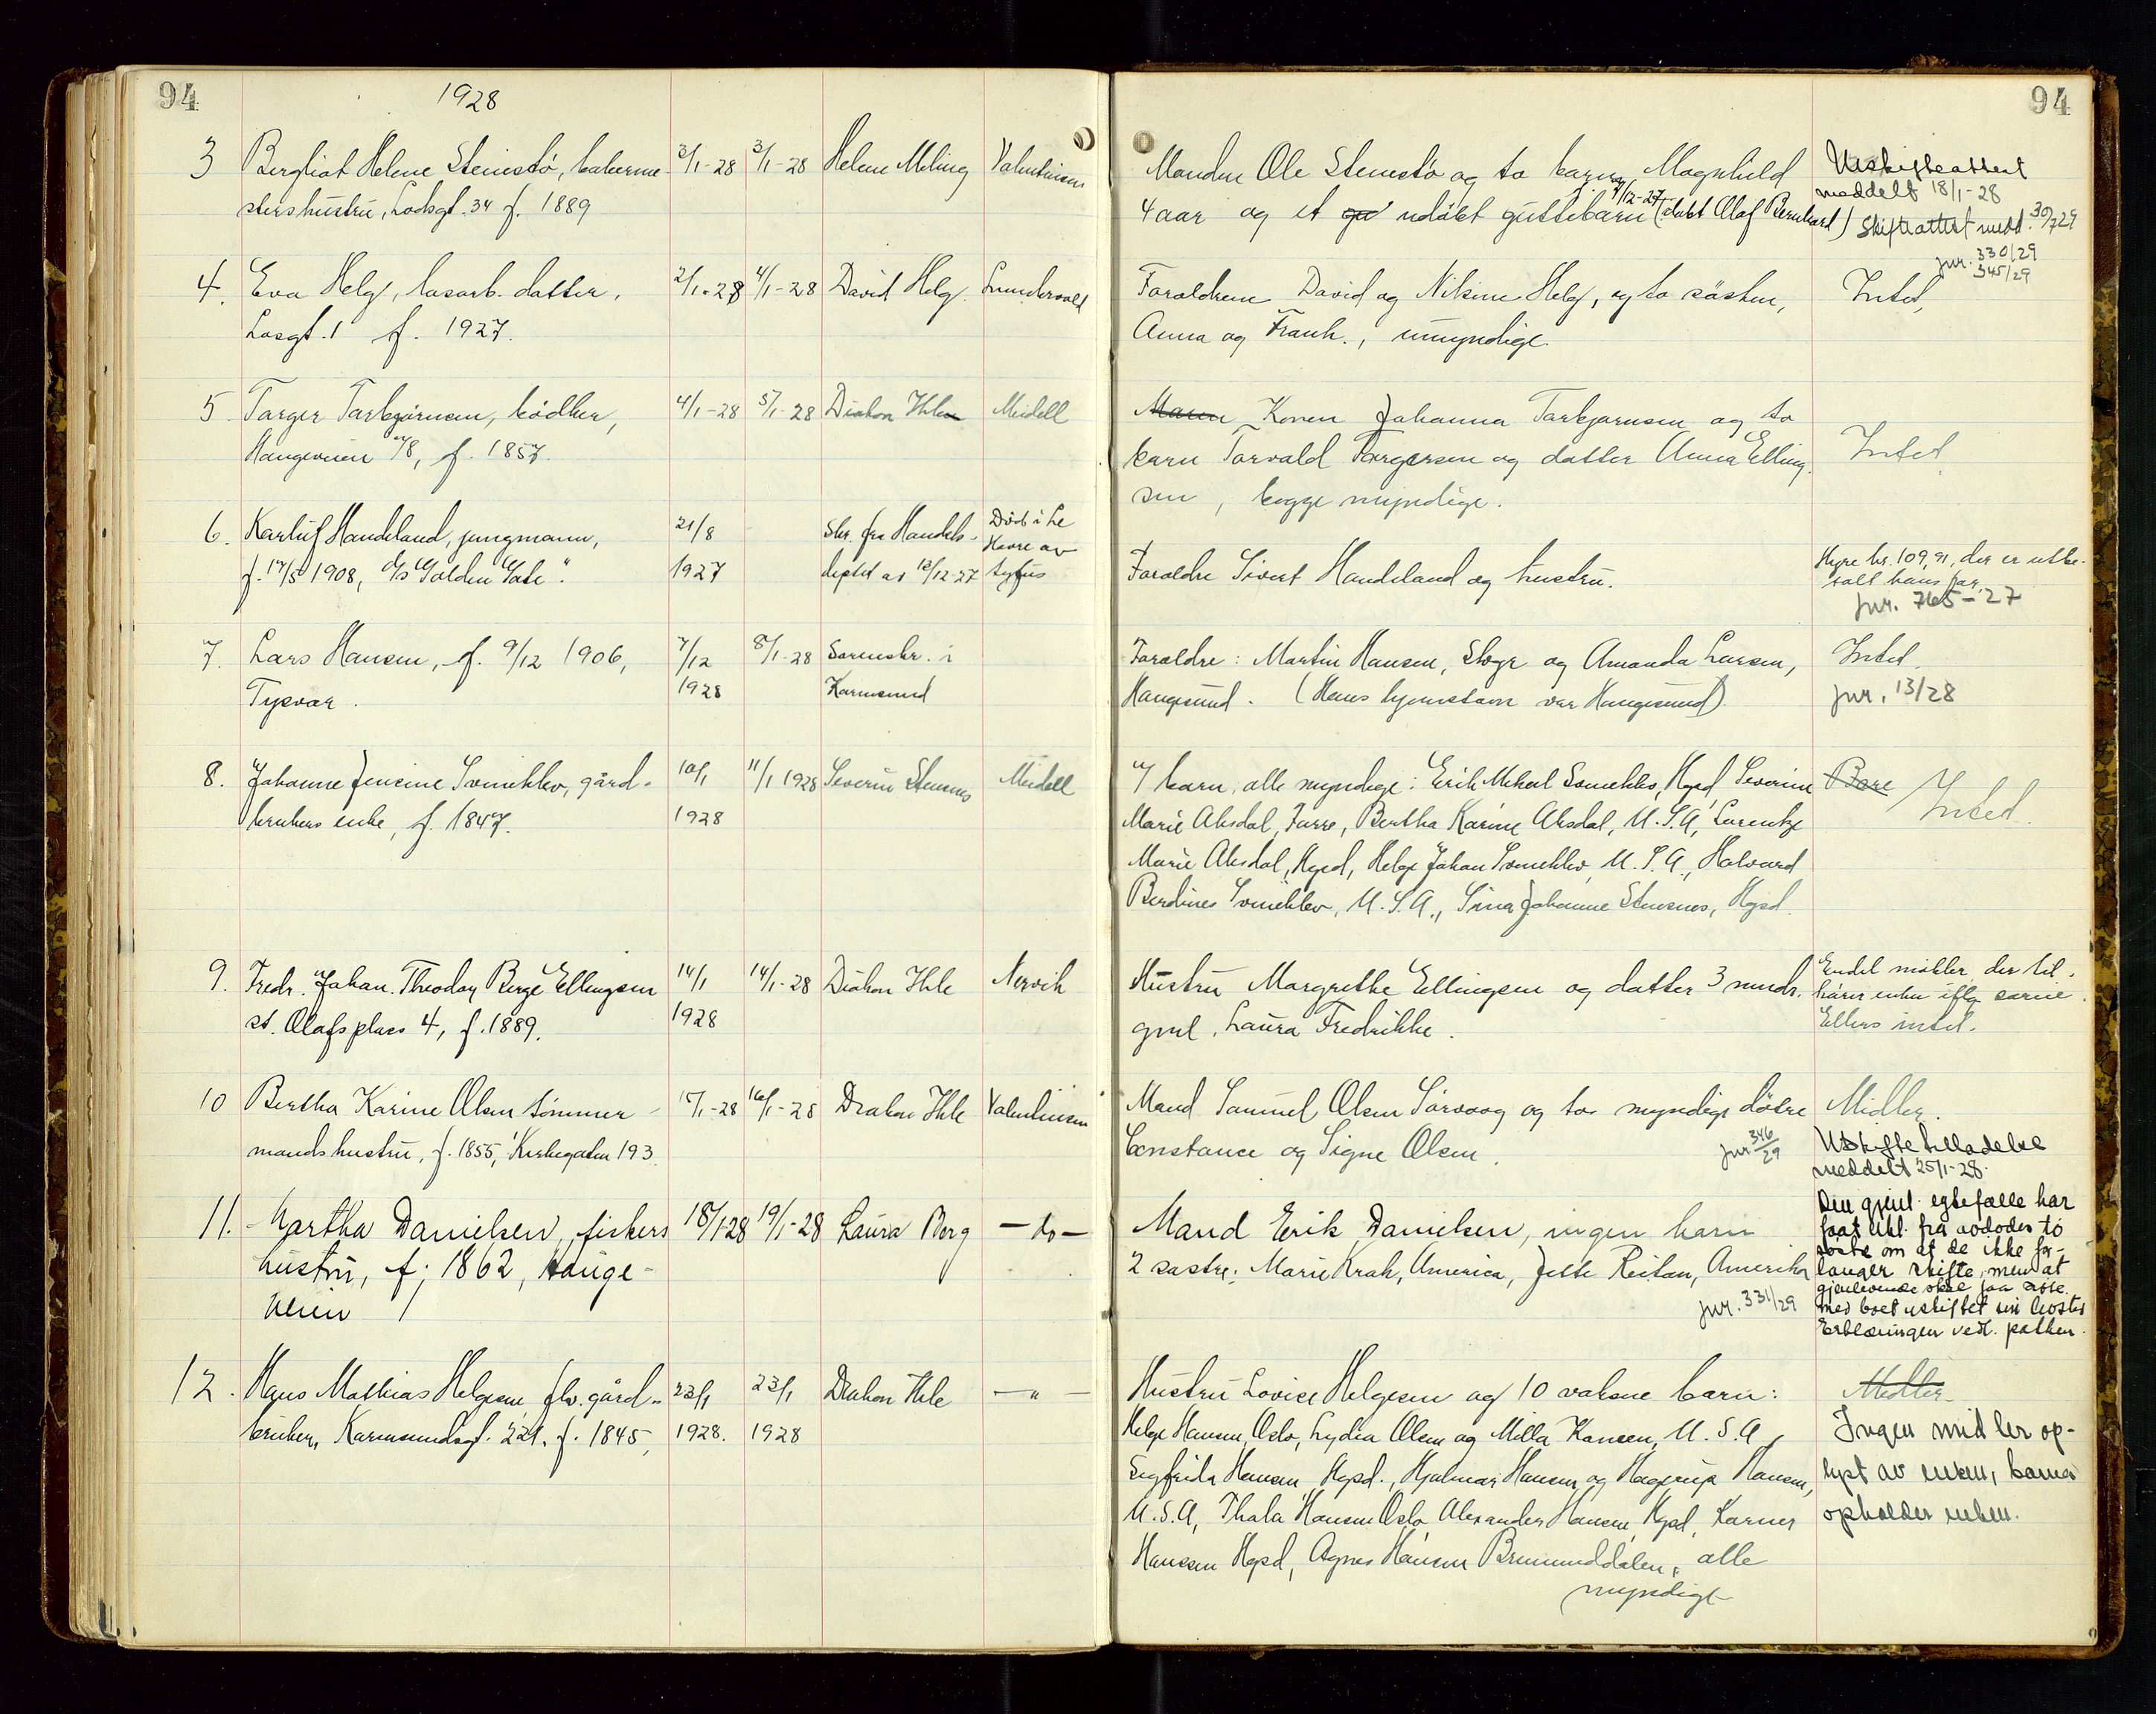 94
1928
94
3 Bergliot Helene Stenestø, bakerme-
stershustru, Losgt. 34 f. 1889
3/1-28 3/1-28 Helene Meling Valentinsen
Manden Ole Stenestø og to barn, Magnhild
4 aar og et udøbt guttebarn (døbt Olaf Bernhard)
Uskifteattest
meddelt 18/1-28
Skifteattest medd. 30/7 29
jnr. 330/29
345/29
4. Eva Helg, løsarb. datter,
Losgt. 1 f. 1927.
2/1-28 4/1-28 David Helg.
Foraldrene David og Nilsine Helg, og to søsken,
Anna og Frank., umyndige.
Intet,
5. Torger Torbjørnsen, bødker,
Haugeveien 78, f. 1857.
4/1-28 5/1-28 Diakon Ihle Meidell
Konen Johanna Torbjørnsen og to
barn Torvald Torgersen og datter Anna Elling-
sen, begge myndige.
Intet
6. Karluf Handeland, jungmann,
f. 17/5 1908, d/s "Golden Gate".
21/8
1927
Skr. fra Handels-
deptet av 12/12-27
Død i Le
Havre av
tyfus
Foraldre Sivert Handeland og hustru.
Hyre kr. 109,91, der er utbe-
talt hans far.
jnr. 765-27
7. Lars Hansen, f. 9/12 1906,
Tysvær.
7/12
1928
8/1-28 Sorenskr. i
Karmsund
Foraldre: Martin Hansen, Skogr og Amanda Larsen,
Haugesund. (Hans hjemstavn var Haugesund).
Intet.
jnr. 13/28
8. Johanne Jensine Svinehlev, gård-
brukers enke, f. 1847.
10/1
1928
11/1 1928 Severin Stensnes Meidell
7 barn, alle myndige: Erik Mikael Svinehlev, Hgsd, Severine
Marie Aksdal, Førre, Bertha Karine Aksdal, U.S.A, Lorentze
Marie Aksdal, Hgsd, Helge Johan Svinehlev, U.S.A., Halvard
Berdines Svinehlev, U.S.A., Sina Johanne Stensnes, Hgsd.
Intet.
9. Fredr. Johan Theodor Berge Ellingsen
st. Olafs plass 4, f. 1889.
14/1
1928
14/1-28 Diakon Ihle Nervik
Hustru Margrethe Ellingsen og datter 3 mndr.
gml. Laura Fredrikke.
Endel møbler, der til-
hører enken iflg. samme.
Ellers intet.
10 Bertha Karine Olsen tømmer-
mandshustru, f. 1855, Kirkegaten 193.
15/1-28 16/1-28 Diakon Ihle Valentinsen
Mand Samuel Olsen Sørvaag og to myndige døtre
Constance og Signe Olsen.
jnr 346/29
Midler.
Uskiftetilladelse
meddelt 25/1-28.
11. Martha Danielsen, fiskers
hustru, f. 1862, Hauge-
veien
18/1-28 19/1-28 Laura Berg - do -
Mand Erik Danielsen, ingen barn
2 søstre: Marie Krak, America, Jette Reitan, Amerika
jnr. 331/29
Den gjenl. egtefælle har
faat erkl. fra avdødes to
søstre om at de ikke for-
langer skifte, men at
gjenlevende skal faa sitte
med boet uskiftet sin levetid
Erklæringen vedl. pakken.
12. Hans Mathias Helgesen, fhv. gård-
bruker, Karmsundsgt. 221. f. 1845,
23/1
1928.
23/1
1928
Diakon Ihle - " -
Hustru Lovise Helgesen og 10 voksne barn:
Helge Hansen, Oslo, Lydia Olsen og Milla Hansen, U.S.A,
Sigfrida Hansen, Hgsd., Hjalmar Hansen og Hagerup Hansen,
U.S.A, Thala Hansen Oslo, Alexander Hansen, Hgsd, Karner
Hansen Hgsd, Agnes Hansen Brumunddalen, alle
myndige
Midler
Ingen midler op-
lyst av enken, barna
opholder enken.